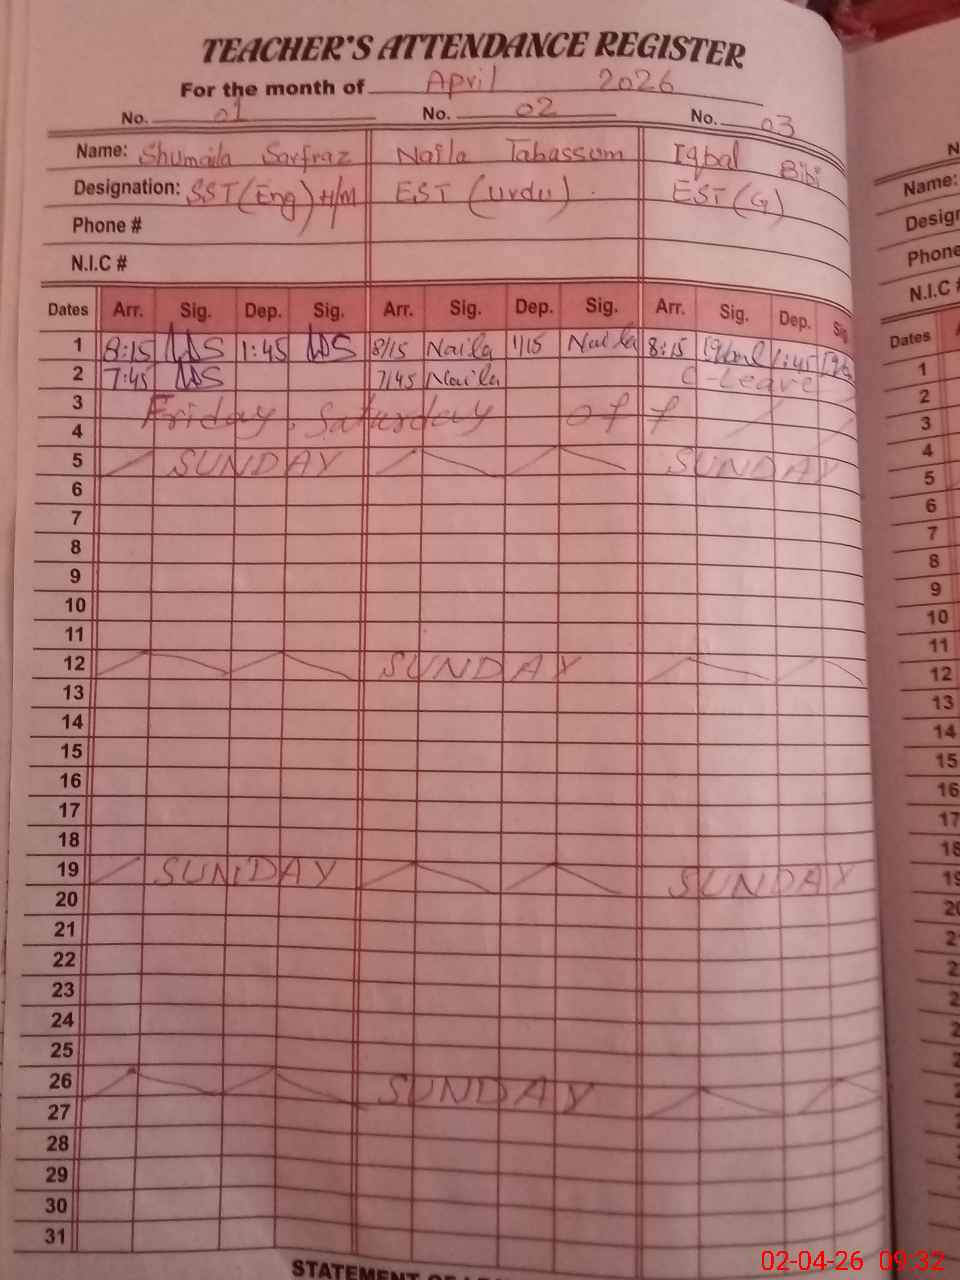 TEACHER'S ATTENDANCE REGISTER
For the month of April 2026
No. 01 No. 02 No. 03
Name: Shumaila Sarfraz Naila Tabassum Iqbal Bibi
Designation: SST(Eng) H/M EST (Urdu). EST (G)
Phone #
N.I.C #
Dates Arr. Sig. Dep. Sig. Arr. Sig. Dep. Sig. Arr. Sig. Dep. Sig
1 8:15 1:45 8/15 Naila 1/15 Naila 8:15 Iqbal 1:45
2 7:45 7/45 Naila C-Leave
3 Friday, Saturday off
4
5 SUNDAY SUNDAY
6
7
8
9
10
11
12 SUNDAY
13
14
15
16
17
18
19 SUNDAY SUNDAY
20
21
22
23
24
25
26 SUNDAY
27
28
29
30
31
STATEMENT OF
N
Name:
Design
Phone
N.I.C #
Dates
1
2
3
4
5
6
7
8
9
10
11
12
13
14
15
16
17
18
19
20
02-04-26 09:32